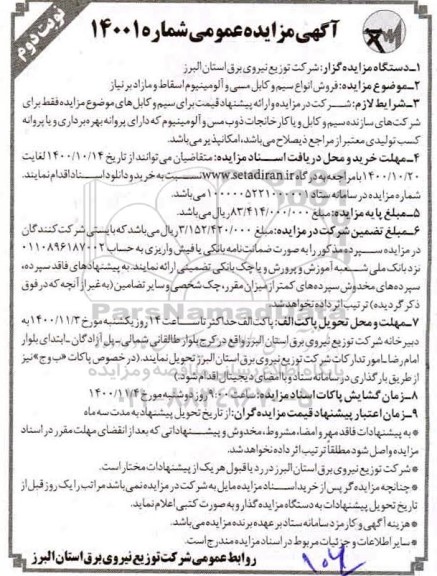 نوبت دوم
آگهی مزایده عمومی شماره ۱۴۰۰۱
۱ـ دستگاه مزایده گزار: شرکت توزیع نیروی برق استان البرز
۲ـ موضوع مزایده: فروش انواع سیم و کابل مسی و آلومینیوم اسقاط و مازاد بر نیاز
۳ـ شرایط لازم: شــرکت در مزایده و ارائه پیشنهاد قیمت برای سیم و کابل‌های موضوع مزایده فقط برای
شرکت‌های سازنده سیم و کابل و یا کارخانجات ذوب مس و آلومینیوم که دارای پروانه بهره‌برداری و یا پروانه
کسب تولیدی معتبر از مراجع ذیصلاح می‌باشد، امکانپذیر می‌باشد.
۴ـ مهلت خرید و محل دریافت اســناد مزایده: متقاضیان می‌توانند از تاریخ ۱۴۰۰/۱۰/۱۴ لغایت
۱۴۰۰/۱۰/۲۰ با مراجعه به درگاه www.setadiran.ir نسبت به خرید و دانلود اسناد اقدام نمایند.
شماره مزایده در سامانه ستاد می‌باشد.
۵ـ مبلغ پایه مزایده: مبلغ ۸۳/۴۱۴/۰۰۰/۰۰۰ ریال می‌باشد.
۶ـ مبلغ تضمین شرکت در مزایده: مبلغ ۳/۱۵۲/۴۲۰/۰۰۰ ریال می‌باشد که بایستی شرکت کنندگان
در مزایده ســپرده مذکور را به صورت ضمانت‌نامه بانکی یا فیش واریزی به حساب ۰۱۱۰۸۹۶۱۸۷۰۰۲
نزد بانک ملی شــعبه آموزش و پرورش و یا چک بانکی تضمینی ارائه نمایند. به پیشنهادهای فاقد سپرده،
سپرده‌های مخدوش، سپرده‌های کمتر از میزان مقرر، چک شخصی و سایر تضامین (به غیر از آنچه که در فوق
ذکر گردیده) ترتیب اثر داده نخواهد شد.
۷ـ مهلت و محل تحویل پاکت الف: پاکت الف حداکثر تا ساعت ۱۴ روز یکشنبه مورخ ۱۴۰۰/۱۱/۳ به
دبیرخانه شرکت توزیع نیروی برق استان البرز واقع در کرج ـ بلوار طالقانی شمالی ـ پل آزادگان ـ ابتدای بلوار
امام رضا ـ امور تدارکات شرکت توزیع نیروی برق استان البرز تحویل نمایند. (در خصوص پاکات «ب و ج» نیز
از طریق بارگذاری در سامانه ستاد و با امضای دیجیتال اقدام شود.)
۸ـ زمان گشایش پاکات اسناد مزایده: ساعت ۹:۰۰ روز دوشنبه مورخ ۱۴۰۰/۱۱/۴
۹ـ زمان اعتبار پیشنهاد قیمت مزایده گران: از تاریخ تحویل پیشنهاد به مدت سه ماه
* به پیشنهادات فاقد مهر و امضا، مشروط، مخدوش و پیشــنهاداتی که بعد از انقضای مهلت مقرر در اسناد
مزایده واصل شود مطلقاً ترتیب اثر داده نخواهد شد.
* شرکت توزیع نیروی برق استان البرز در رد یا قبول هر یک از پیشنهادات مختار است.
* چنانچه مزایده‌گر پس از خرید اســناد مزایده مایل به شرکت در مزایده نمی‌باشد مراتب را یک روز قبل از
تاریخ تحویل پیشنهادات به دستگاه مزایده گذار و به صورت کتبی اعلام نماید.
* هزینه آگهی و کارمزد سامانه ستاد بر عهده برنده مزایده می‌باشد.
* سایر اطلاعات و جزئیات مربوط در اسناد مزایده مندرج است.
روابط عمومی شرکت توزیع نیروی برق استان البرز
ParsNamadData
۱۰۴